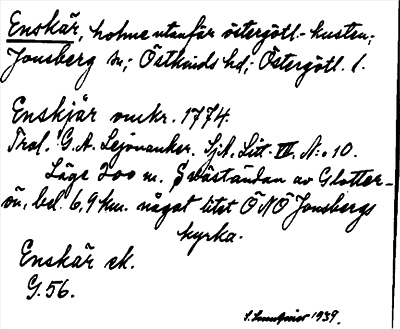 Enskär, holme utanför östergötl. kusten;
Jonsberg sn; Östkinds hd; Östergötl. l.
Enskjär omkr. 1774.
Tral. G. A. Lejonanker. SjA, Litt. III, N:o 10.
Läge 200 m. S öständan av Glotter-
ön, bel. 6,9 km. något litet ÖNÖ Jonsbergs
kyrka.
Enskär ek.
G. 56.
1939.